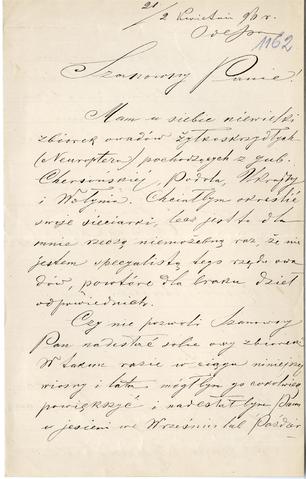 21/2 Kwiecień 90 r.
Odessa
1162
Szanowny Panie!
Mam u siebie niewielki
zbiorek owadów żyłkoskrzydłych
(Neuroptera) pochodzących z gub.
Chersońskiej, Podola, Ukrainy
i Wołynia. Chciałbym określić
swoje sieciarki, lecz jest to dla
mnie rzeczą niemożebną raz, że nie
jestem specyalistą tego rzędu owa-
dów, powtóre dla braku dzieł
odpowiednich.
Czy nie pozwoli Szanowny
Pan nadesłać sobie owy zbiorek
W takim razie w ciągu niniejszej
wiosny i lata mógłbym go cokolwiek
powiększyć i nadesłałbym Panu
w jesieni we Wrześniu lub Paździer